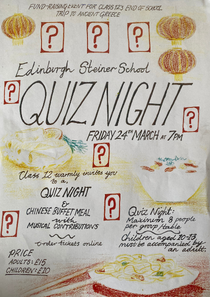 FUND-RAISING EVENT FOR CLASS 12'S END OF SCHOOL
TRIP TO ANCIENT GREECE
? ? ?
Edinburgh Steiner School
? ?
QUIZ NIGHT
FRIDAY 24TH MARCH AT 7PM
? ?
Class 12 warmly invites you
to a
QUIZ NIGHT
&
CHINESE BUFFET MEAL
with
MUSICAL CONTRIBUTIONS
order tickets online
?
?
Quiz Night:
Maximum 8 people
per group/table
Children aged
must be accompanied by
an adult.
PRICE
ADULTS: £15
CHILDREN: £10